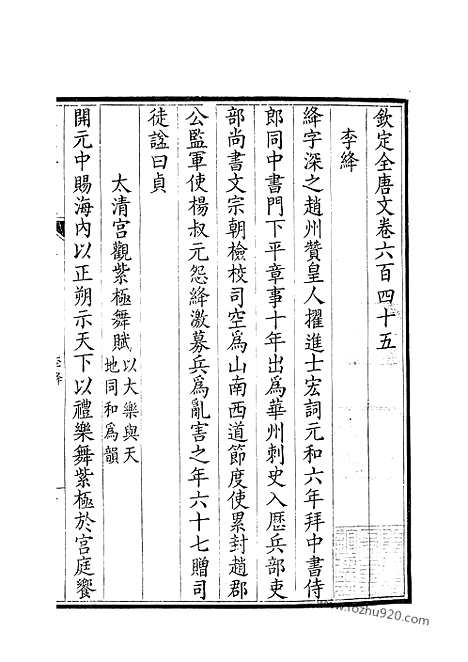 欽定全唐文卷六百四十五
李絳
絳字深之趙州贊皇人擢進士宏詞元和六年拜中書侍
郎同中書門下平章事十年出爲華州刺史入歷兵部吏
部尚書文宗朝檢校司空爲山南西道節度使累封趙郡
公監軍使楊叔元怨絳激募兵爲亂害之年六十七贈司
徒諡曰貞
太清宮觀紫極舞賦以大樂與天
地同和爲韻
開元中賜海內以正朔示天下以禮樂舞紫極於宮庭饗
www.rozhu920.com